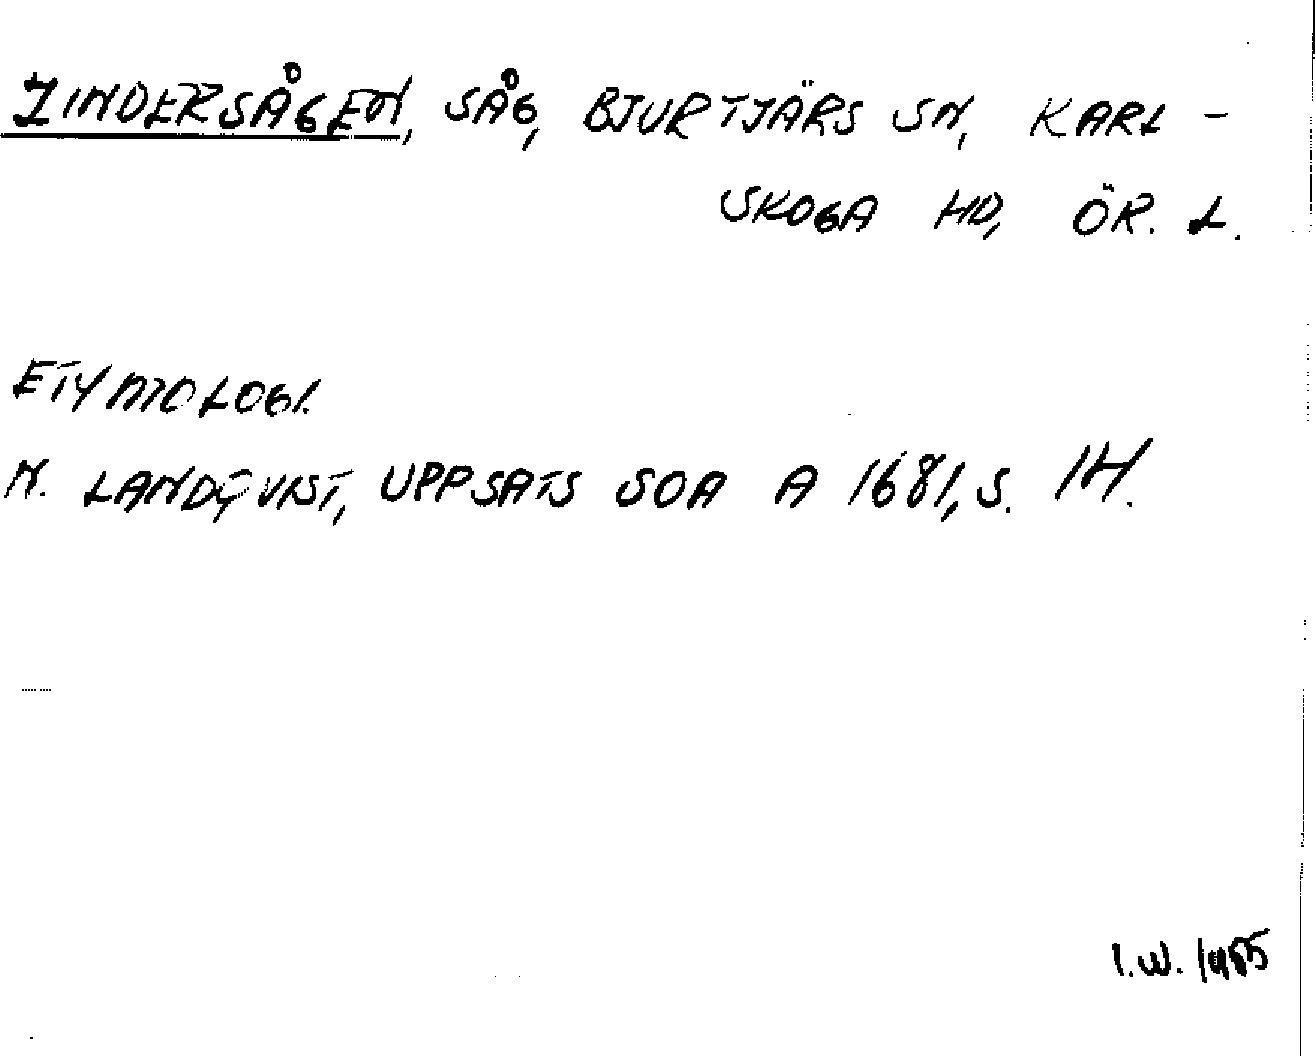 ZINDERSÅGEN, SÅG, BJURTJÄRS SN, KARL-
SKOGA HD, ÖR. L.
ETYMOLOGI.
N. LANDQVIST, UPPSATS SOA A 1681, S. 14.
I.W. 1985